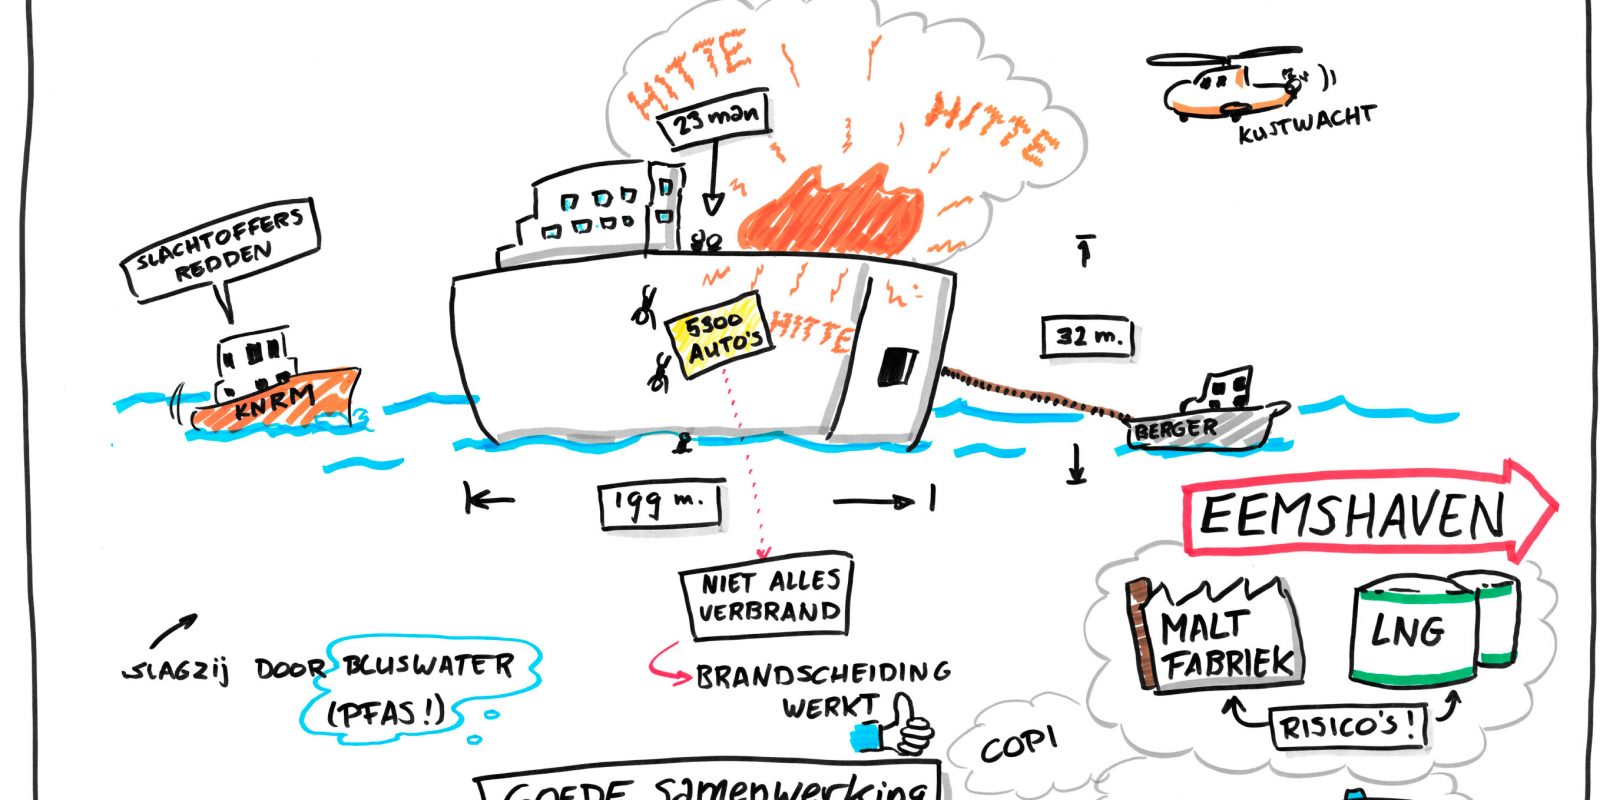 HITTE
HITTE
23 man
KUSTWACHT
SLACHTOFFERS
REDDEN
KNRM
5300
AUTO'S
HITTE
32 m.
BERGER
199 m.
EEMSHAVEN
NIET ALLES
VERBRAND
MALT
FABRIEK
LNG
SLAGZIJ DOOR BLUSWATER
(PFAS!)
BRANDSCHEIDING
WERKT
RISICO'S!
COPI
GOEDE samenwerking